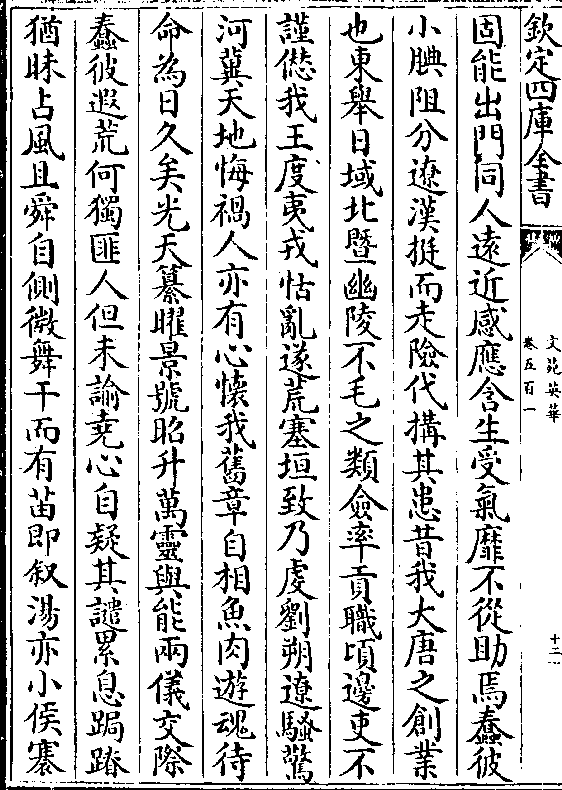 欽定四庫全書
文苑英華
卷五百一
十二
固能出門同人遠近感應含生受氣靡不從助焉蠢彼
小腆阻分遼漢挺而走險代搆其患昔我大唐之創業
也東舉日域北暨幽陵不毛之類僉率貢職頃邊吏不
謹愆我王度夷戎怙亂遂荒塞垣致乃虔劉朔遼騷驚
河冀天地悔禍人亦有心懷我舊章自相魚肉遊魂待
命為日久矣光天纂曜景號昭升萬靈與能兩儀交際
蠢彼遐荒何獨匪人但未諭堯心自疑其譴累息跼蹐
猶昧占風且舜自側微舞干而有苗即叙湯亦小侯褰